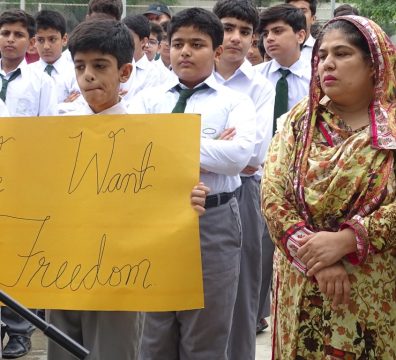 Want
Freedom